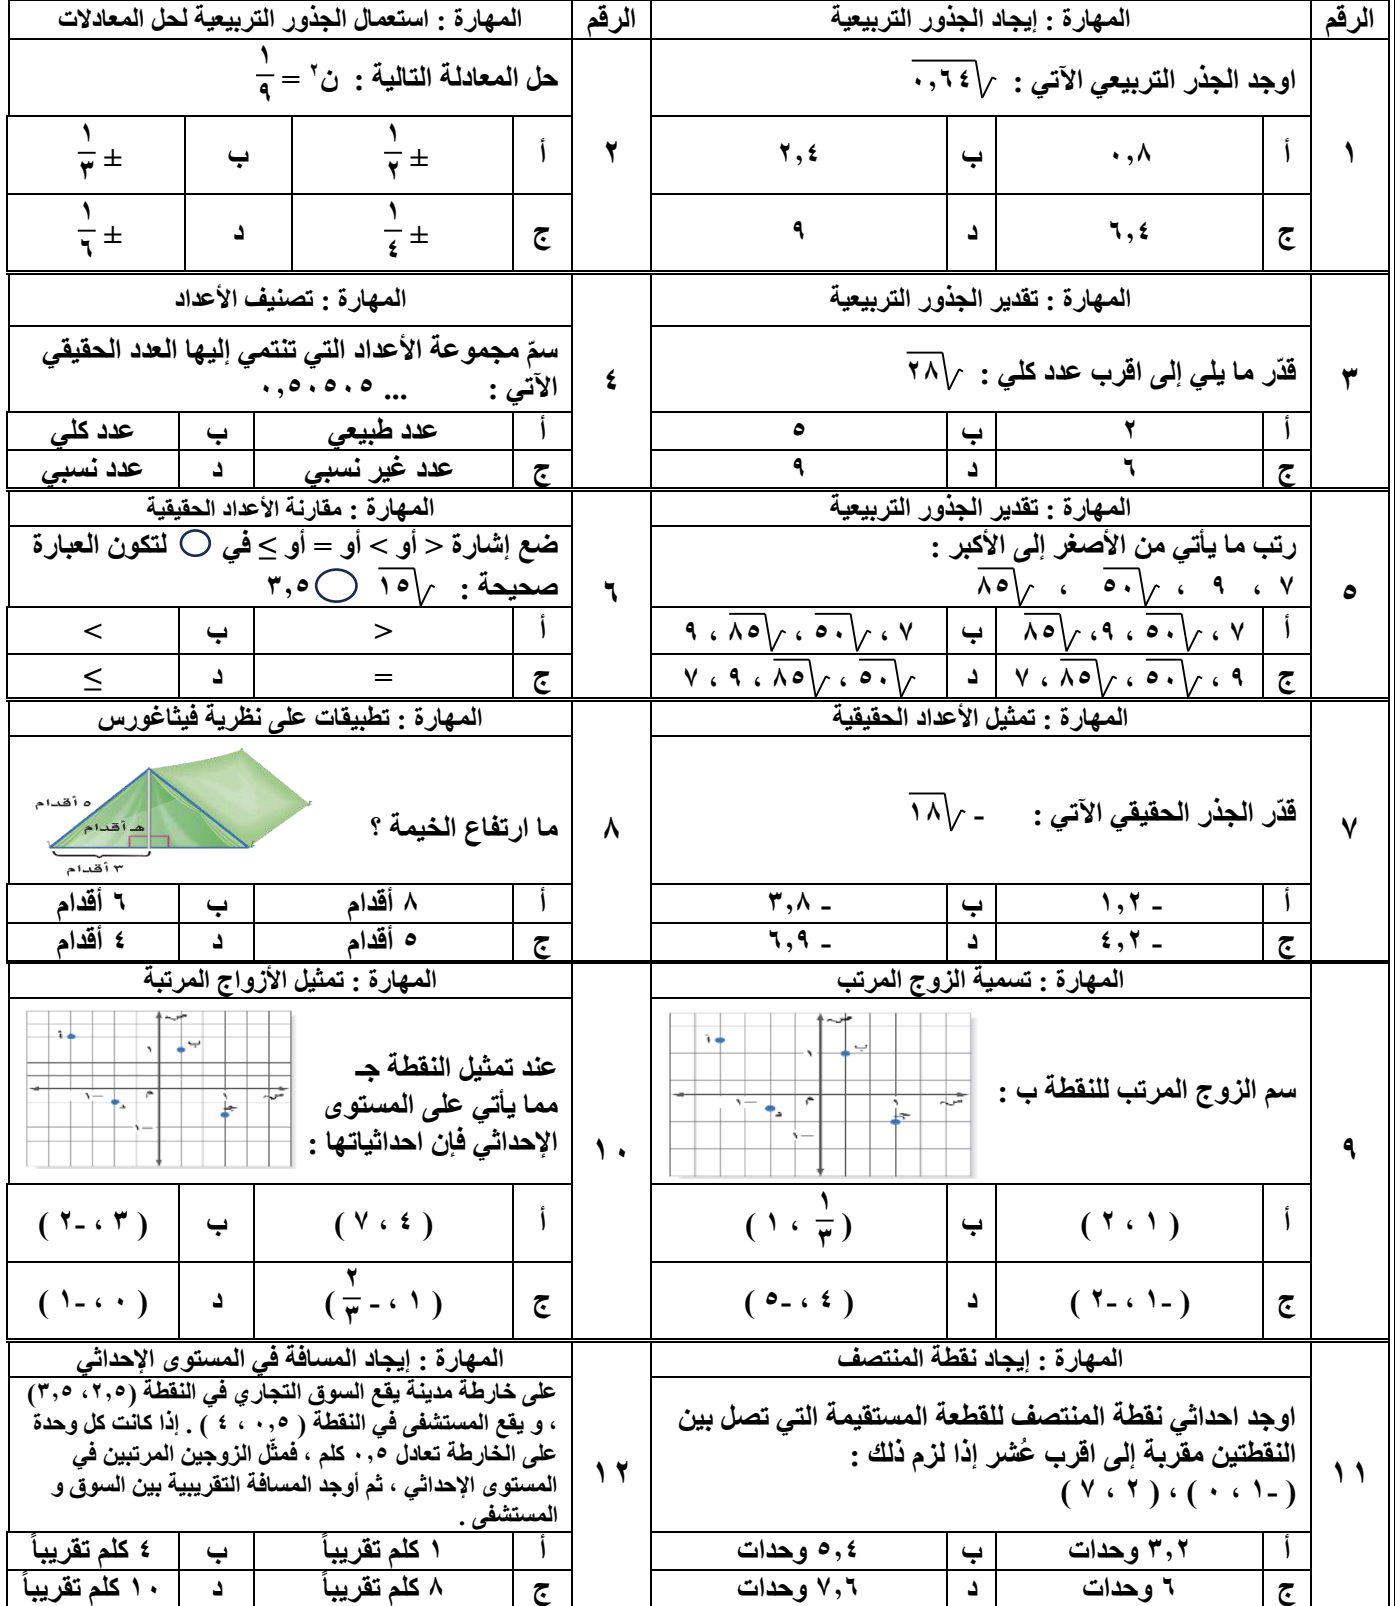 الرقم المهارة : إيجاد الجذور التربيعية الرقم المهارة : استعمال الجذور التربيعية لحل المعادلات
١ اوجد الجذر التربيعي الآتي : √٠,٦٤
أ ٠,٨ ب ٢,٤
ج ٦,٤ د ٩
٢ حل المعادلة التالية : ن² = ١/٩
أ ± ١/٢ ب ± ١/٣
ج ± ١/٤ د ± ١/٦
٣ المهارة : تقدير الجذور التربيعية
قدّر ما يلي إلى اقرب عدد كلي : √٢٨
أ ٢ ب ٥
ج ٦ د ٩
٤ المهارة : تصنيف الأعداد
سمّ مجموعة الأعداد التي تنتمي إليها العدد الحقيقي
الآتي : ... ٠,٥٠٥٠٥
أ عدد طبيعي ب عدد كلي
ج عدد غير نسبي د عدد نسبي
٥ المهارة : تقدير الجذور التربيعية
رتب ما يأتي من الأصغر إلى الأكبر :
٧ ، ٩ ، √٥٠ ، √٨٥
أ ٧ ، √٥٠ ، ٩ ، √٨٥ ب ٧ ، √٥٠ ، √٨٥ ، ٩
ج ٩ ، √٥٠ ، √٨٥ ، ٧ د √٥٠ ، √٨٥ ، ٩ ، ٧
٦ المهارة : مقارنة الأعداد الحقيقية
ضع إشارة < أو > أو = أو ≥ في ◯ لتكون العبارة
صحيحة : √١٥ ◯ ٣,٥
أ > ب <
ج = د ≥
٧ المهارة : تمثيل الأعداد الحقيقية
قدّر الجذر الحقيقي الآتي : - √١٨
أ - ١,٢ ب - ٣,٨
ج - ٤,٢ د - ٦,٩
٨ المهارة : تطبيقات على نظرية فيثاغورس
ما ارتفاع الخيمة ؟
٥ أقدام
هـ أقدام
٣ أقدام
أ ٨ أقدام ب ٦ أقدام
ج ٥ أقدام د ٤ أقدام
٩ المهارة : تسمية الزوج المرتب
سم الزوج المرتب للنقطة ب :
ص
أ
ب
١
-١
م
س
د
جـ
-١
أ ( ١ ، ٢ ) ب ( ١/٣ ، ١ )
ج ( -١ ، -٢ ) د ( ٤ ، -٥ )
١٠ المهارة : تمثيل الأزواج المرتبة
عند تمثيل النقطة جـ
مما يأتي على المستوى
الإحداثي فإن احداثياتها :
ص
أ
ب
١
-١
م
١
س
د
جـ
-١
أ ( ٤ ، ٧ ) ب ( ٣ ، -٢ )
ج ( ١ ، - ٢/٣ ) د ( ٠ ، -١ )
١١ المهارة : إيجاد نقطة المنتصف
اوجد احداثي نقطة المنتصف للقطعة المستقيمة التي تصل بين
النقطتين مقربة إلى اقرب عُشر إذا لزم ذلك :
( -١ ، ٠ ) ، ( ٢ ، ٧ )
أ ٣,٢ وحدات ب ٥,٤ وحدات
ج ٦ وحدات د ٧,٦ وحدات
١٢ المهارة : إيجاد المسافة في المستوى الإحداثي
على خارطة مدينة يقع السوق التجاري في النقطة (٢,٥، ٣,٥)
، و يقع المستشفى في النقطة ( ٠,٥ ، ٤ ) . إذا كانت كل وحدة
على الخارطة تعادل ٠,٥ كلم ، فمثّل الزوجين المرتبين في
المستوى الإحداثي ، ثم أوجد المسافة التقريبية بين السوق و
المستشفى .
أ ١ كلم تقريباً ب ٤ كلم تقريباً
ج ٨ كلم تقريباً د ١٠ كلم تقريباً